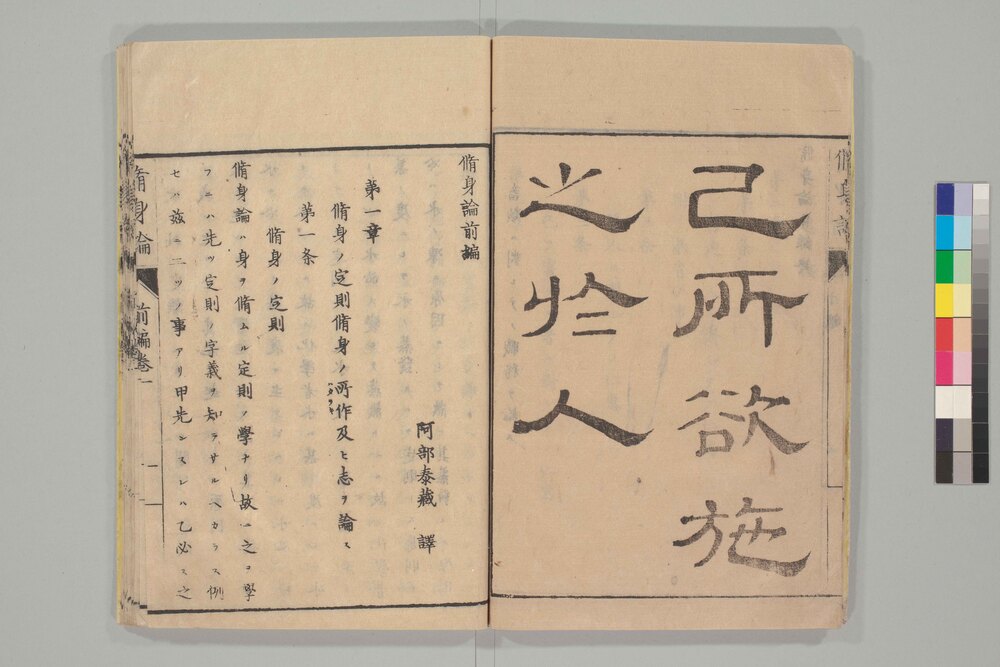 己所欲施
之於人
脩身論前編
阿部泰藏 譯
第一章
脩身ノ定則脩身ノ所作及ヒ志ヲ論ス
脩身ノ定則
第一条
脩身論ハ身ヲ脩ムル定則ノ學ナリ故ニ之ヲ學
フニハ先ツ定則ノ字義ヲ知ラサルヘカラス例
セハ茲ニ二ツノ事アリ甲先ンスレハ乙必ス之
脩身論 前編巻一 一